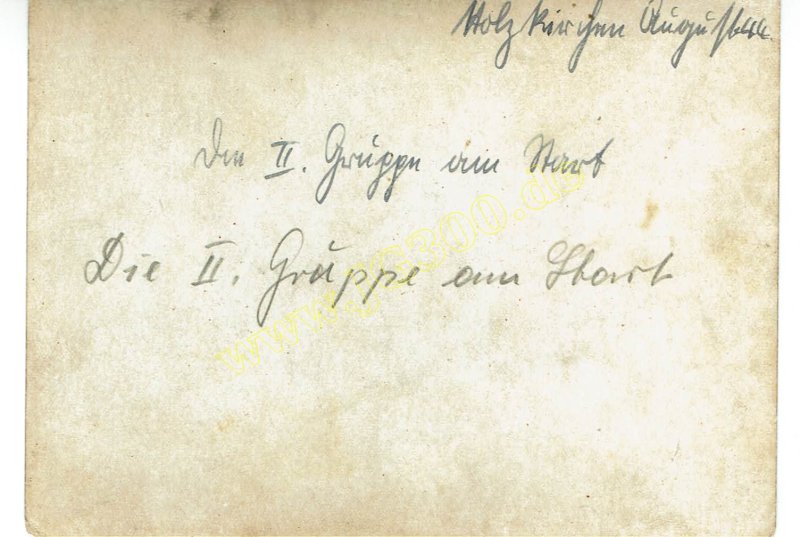 Holzkirchen August 44.
Die II. Gruppe am Start
Die II. Gruppe am Start